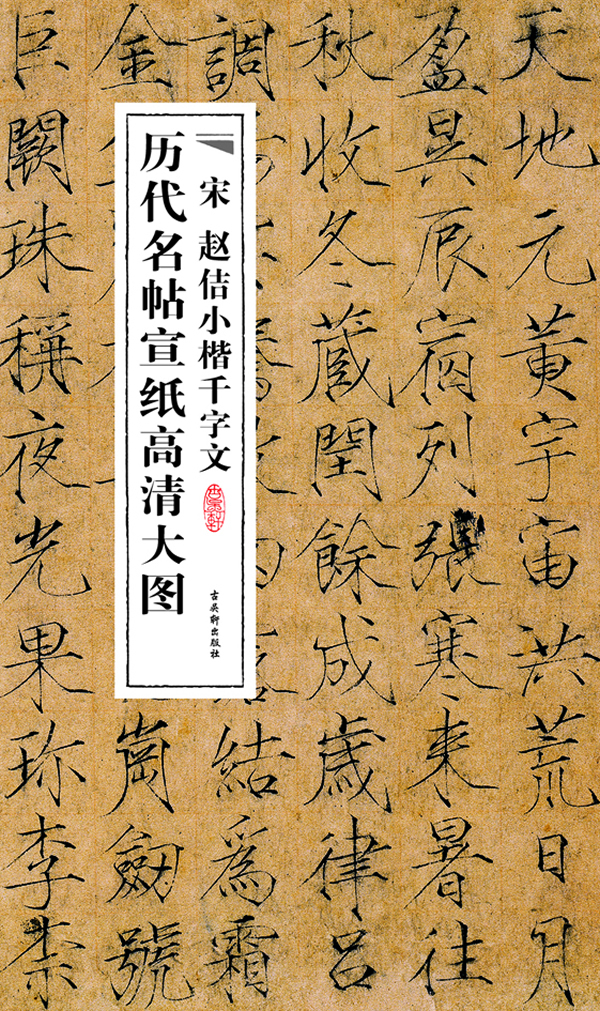 天地元黄宇宙洪荒日月
盈昃辰宿列張寒来暑往
秋收冬蔵閏餘成歲律吕
調
結爲霜
金
崗劒號
巨闕珠稱夜光果珍李柰
历代名帖宣纸高清大图
宋 赵佶小楷千字文
古吴轩出版社